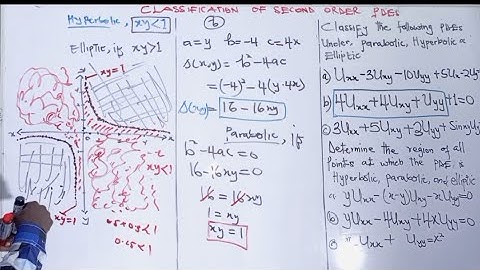 CLASSIFICATION OF SECOND ORDER PDES
Hyperbolic, xy<1
Elliptic, if xy>1
xy=1
y
x
x
xy<1
xy=1
y
0.5<1
0.25<1
b
a=y b=-4 c=4x
Δ(x,y)=b²-4ac
=(-4)²-4(y·4x)
Δ(x,y)=16-16xy
Parabolic, if
b²-4ac=0
16-16xy=0
16=16xy
1=xy
xy=1
Classify the following PDEs
Under, parabolic, Hyperbolic &
Elliptic
a) Uxx-3Uxy-10Uyy+5Ux-2Uy=
b) 4Uxx+4Uxy+Uyy+1=0
c) 3Uxx+5Uxy+3Uyy+SinxUy
Determine the region of all
points at which the PDE is
Hyperbolic, parabolic, and elliptic
a yUxx-(x-y)Uxy-xUyy=0
b) yUxx-4Uxy+4xUyy=0
c) Uxx+ Uyy=x²